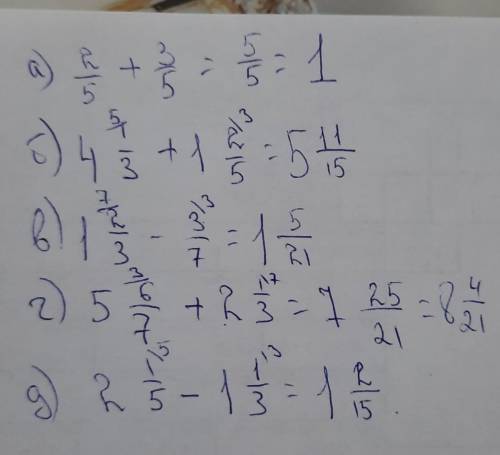 а) 2/5 + 3/5 = 5/5 = 1
б) 4 1/3 ⁵⁾ + 1 2/5 ⁽³ = 5 11/15
в) 1 ⁷⁾ 2/3 - 3/7 ⁽³ = 1 5/21
г) 5 ³⁾ 6/7 + 2 1/3 ⁽⁷ = 7 25/21 = 8 4/21
д) 2 1/5 - 1 1/3 ⁽³ = 1 2/15.